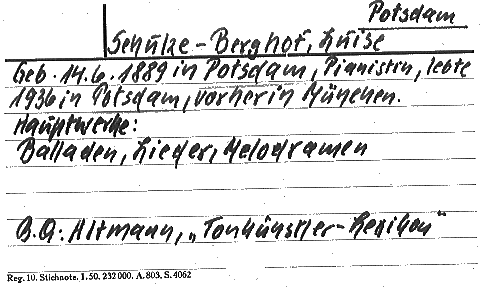 Potsdam
Schulze-Berghof, Luise
Geb. 14.6.1889 in Potsdam, Pianistin, lebte
1936 in Potsdam, vorher in München.
Hauptwerke:
Balladen, Lieder, Melodramen
B.Q.: Altmann, „Tonkünstler-Lexikon"
Reg. 10. Stichnote. I. 50. 232000. A. 803. S. 4062